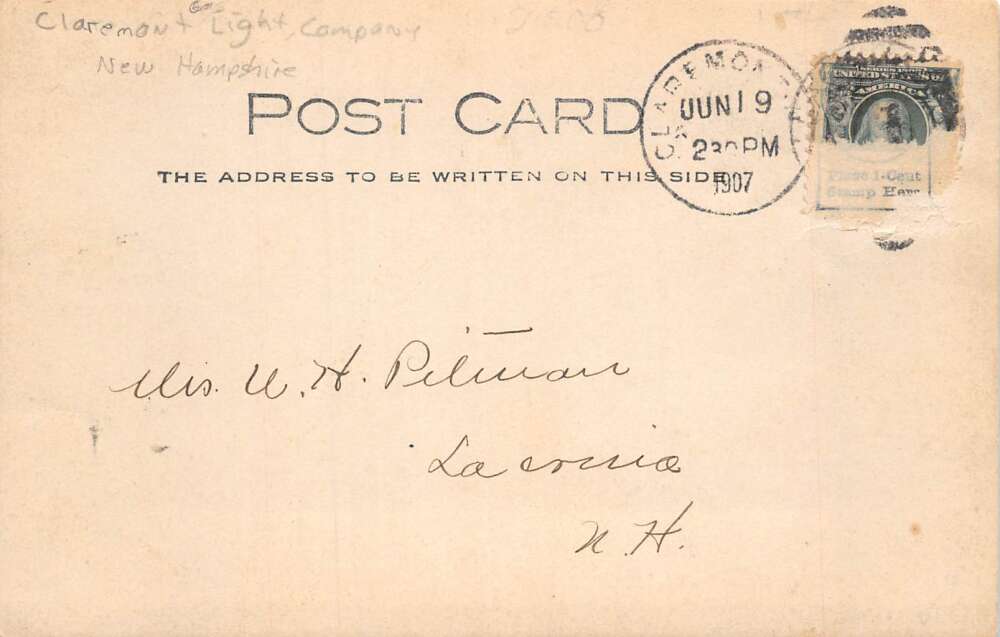 Claremont Gas Light, Company
New Hampshire
POST CARD
THE ADDRESS TO BE WRITTEN ON THIS SIDE
CLAREMONT
JUN 19
230PM
1907
SERIES 1902
UNITED STATES OF
AMERICA
Place 1-Cent
Stamp Here
Mrs. W. H. Pitman
Laconia
N. H.